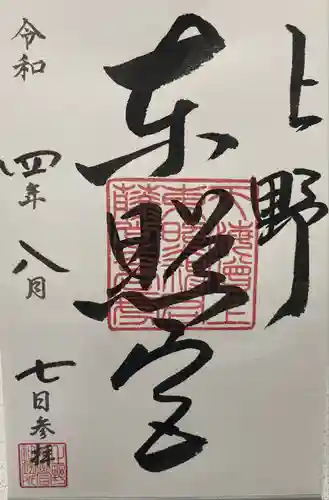 上野
東照宮
令和
四年
八月
七日参拝